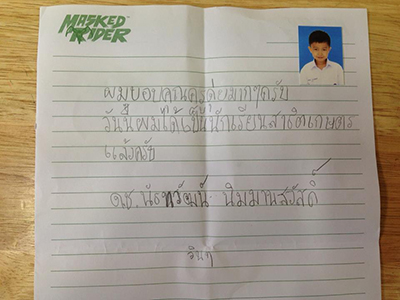 MASKED
RIDER
ผมขอบคุณครูต่อมากๆครับ
วันนี้ผมได้เป็นนักเรียนสาธิตเกษตร
แล้วครับ
ด.ช. นัธทวัฒน์ นิมมานสวัสดิ์